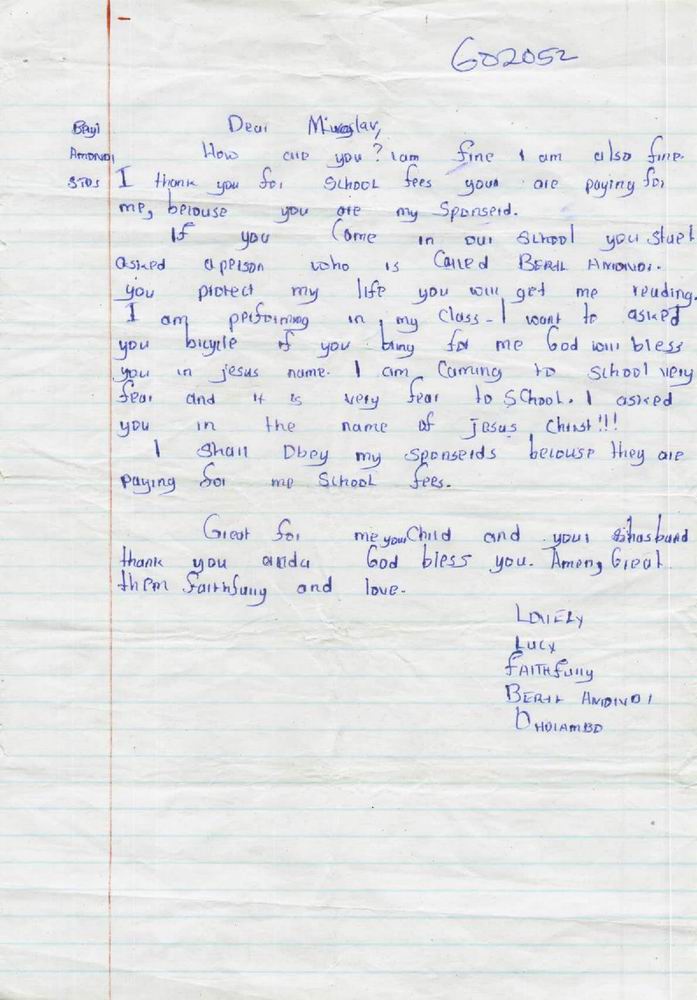 602052
Beryl Dear Miroslav,
AMONDI How are you? I am fine I am also fine.
STD5 I thank you for SCHOOL fees your are paying for
me, beiouse you are my Sponserd.
If you Come in our SCHOOL you
asked a person who is Called BERIL AMONDI.
you protect my life you will get me reading.
I am performing in my class - I want to asked
you bicycle if you bing for me God will bless
you in jesus name. I am Caming to school very
fear and it is very fear to SCHOOL. I asked
you in the name of jesus Christ!!!
I Shall Obey my Sponserds belouse they are
paying for me SCHOOL fees.
Great for me your Child and your husband
thank you God bless you. Among Great
them faithfully and love.
LOVELY
LUCY
FAITHfully
BERIL AMONDI
OHDIAMBO